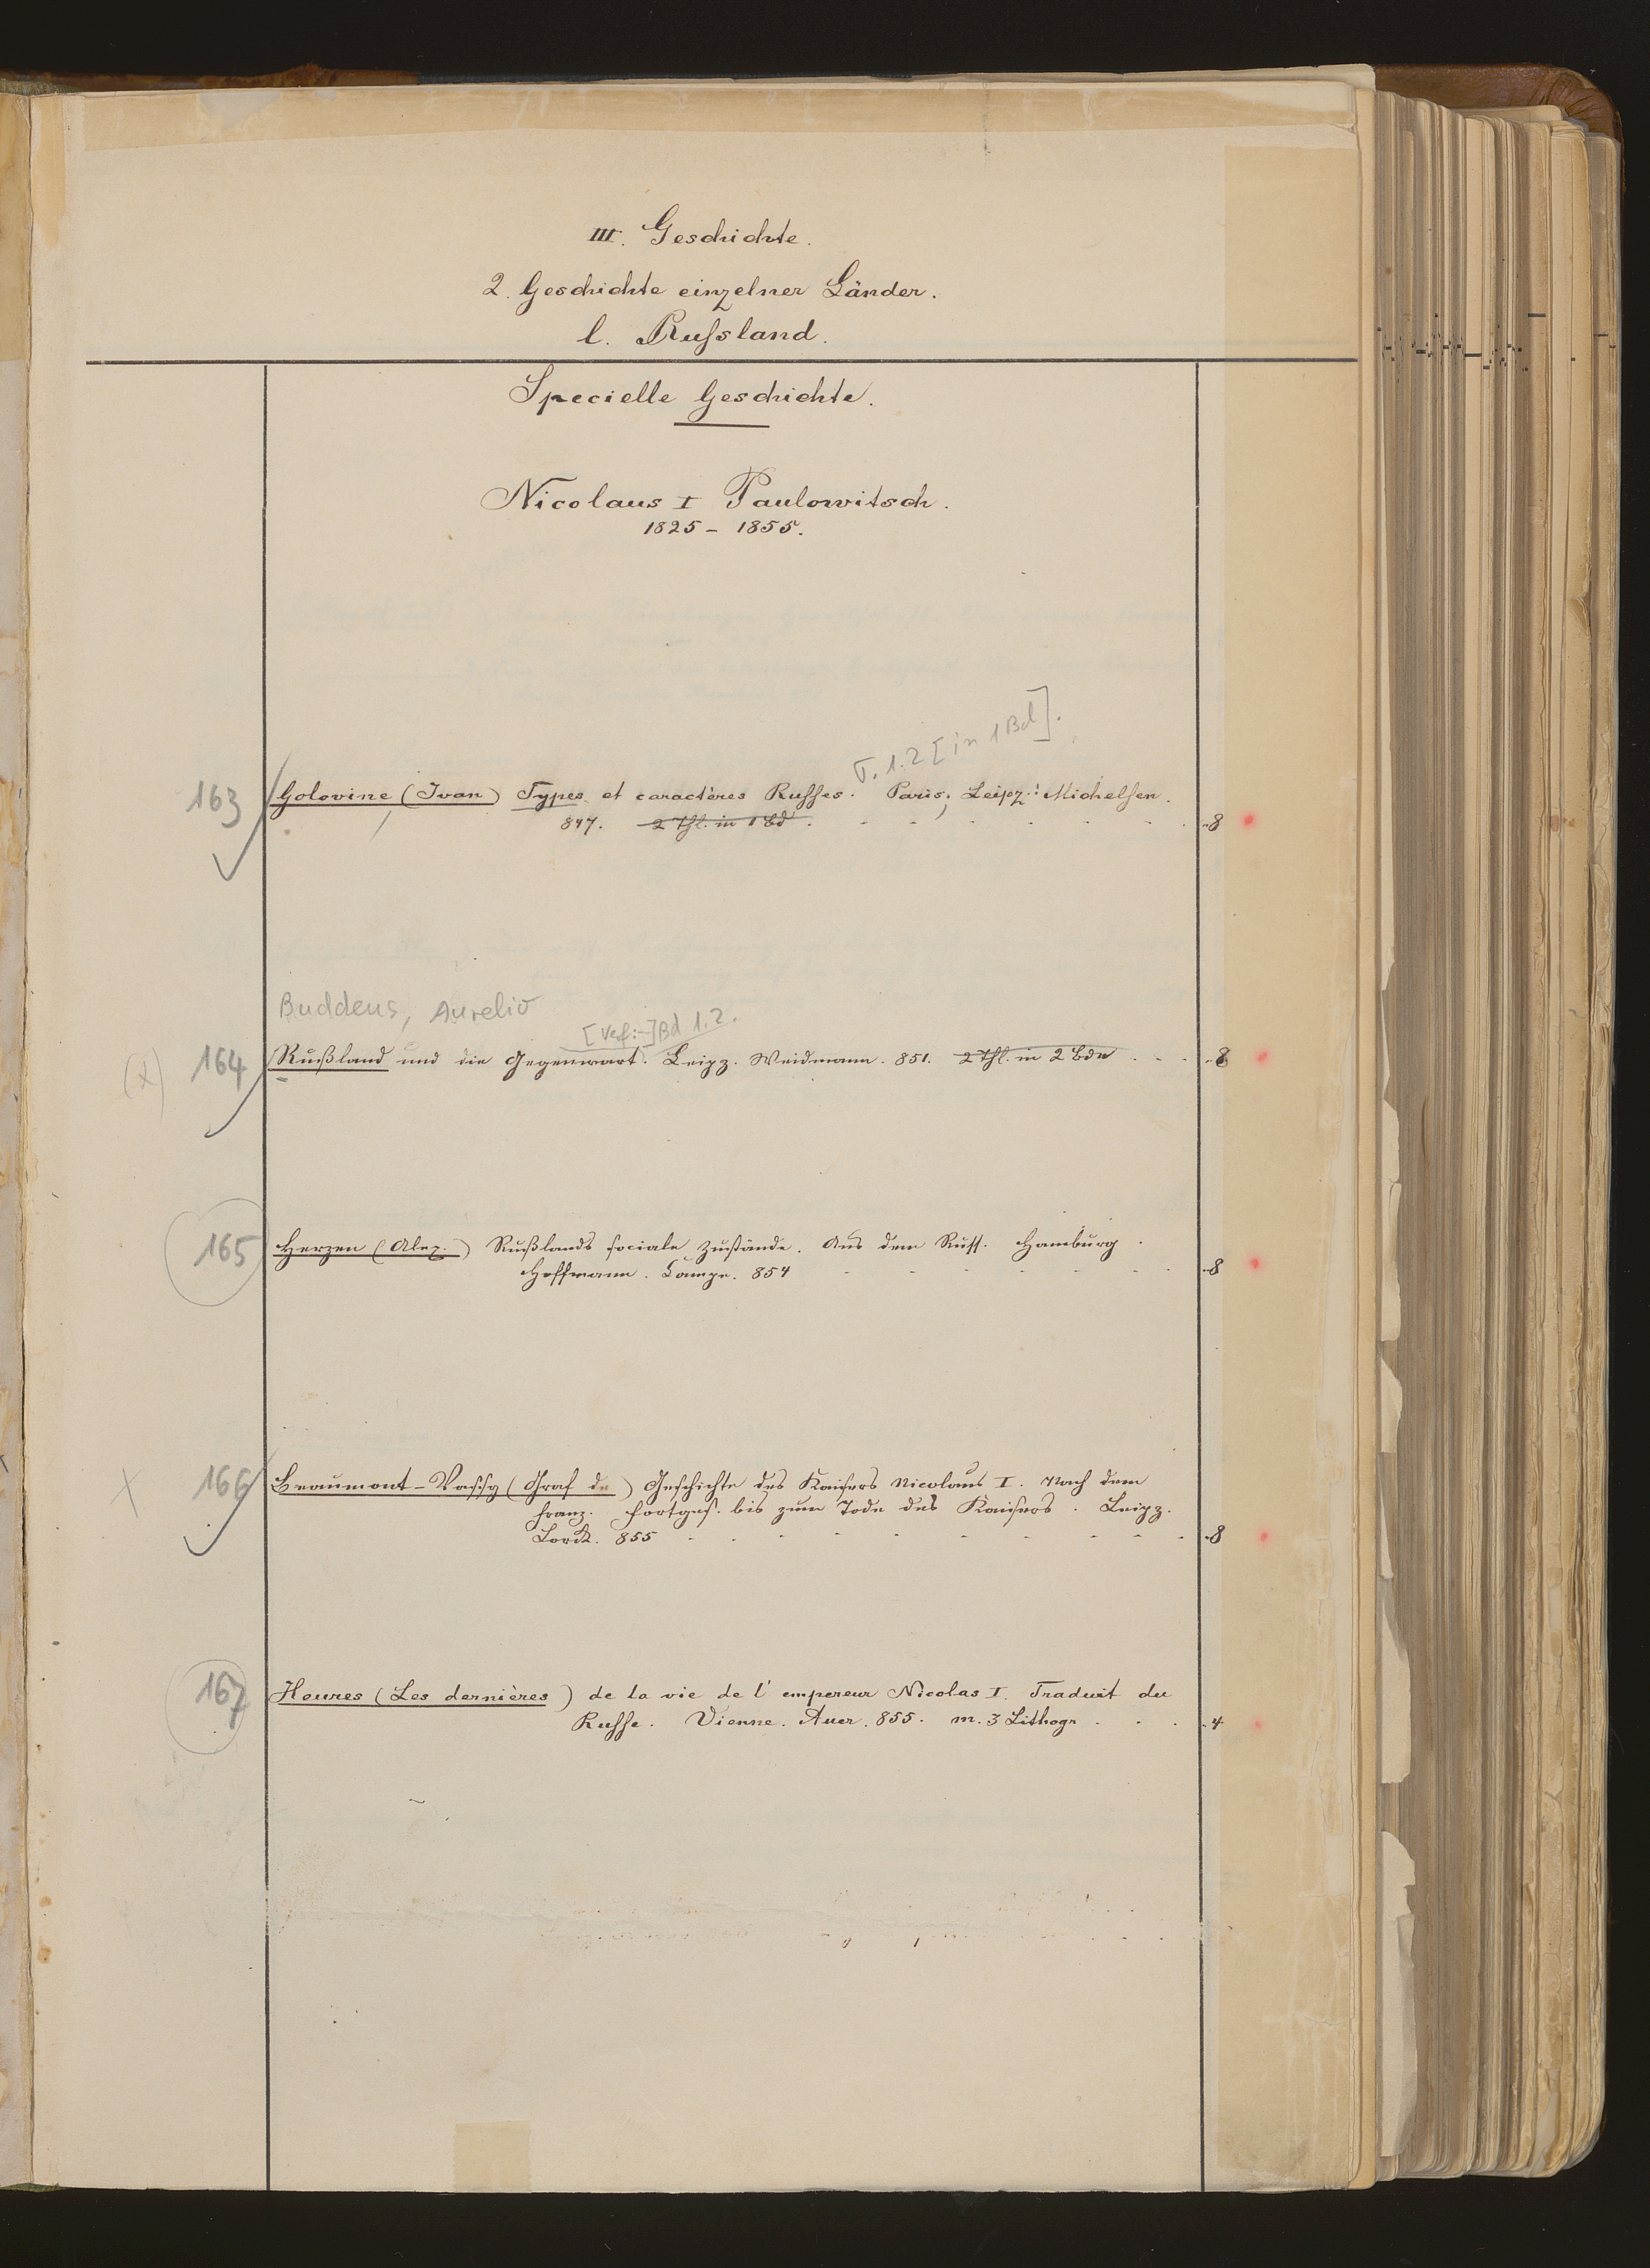 III. Geschichte.
2. Geschichte einzelner Länder.
l. Russland.
Specielle Geschichte.
Nicolaus I Paulowitsch.
1825 - 1855.
T. 1.2 [in 1 Bd].
163 Golovine (Ivan) Types et caractères Russes. Paris; Leipz.: Michelsen.
847. 2 Thl. in 1 Bd . . . . . . . 8
Buddeus, Aurelio
[Verf:-] Bd 1.2.
(x) 164 Rußland und die Gegenwart. Leipz. Weidmann. 851. 2 Thl. in 2 Bdn . . . 8
165 Herzen (Alex.) Rußlands sociale Zustände. Aus dem Russ. Hamburg.
Hoffmann. Campe. 854 . . . . . . . 8
x 166 Beaumont-Vassy (Graf de) Geschichte des Kaisers Nicolaus I. Nach dem
franz. Fortges. bis zum Tode des Kaisers. Leipz.
Lorck. 855 . . . . . . . . . . 8
167 Heures (Les dernières) de la vie de l'empereur Nicolas I. Traduit du
Russe. Vienne. Auer. 855. m. 3 Lithogr . . . 4